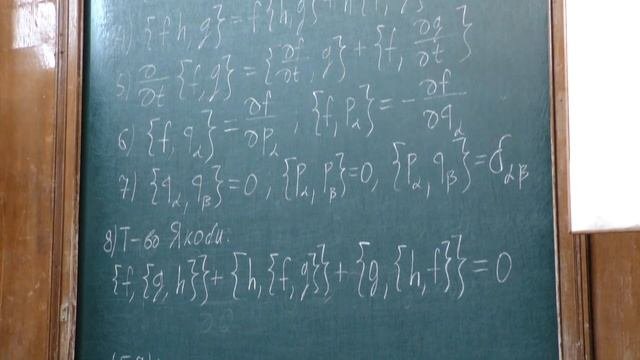 4) {fh, g} = f{h, g} + h{f, g}
5) ∂/∂t {f, g} = {∂f/∂t, g} + {f, ∂g/∂t}
6) {f, q_α} = ∂f/∂p_α , {f, p_α} = -∂f/∂q_α
7) {q_α, q_β} = 0, {p_α, p_β} = 0, {p_α, q_β} = δ_αβ
8) Т-во Якоби.
{f, {g, h}} + {h, {f, g}} + {g, {h, f}} = 0